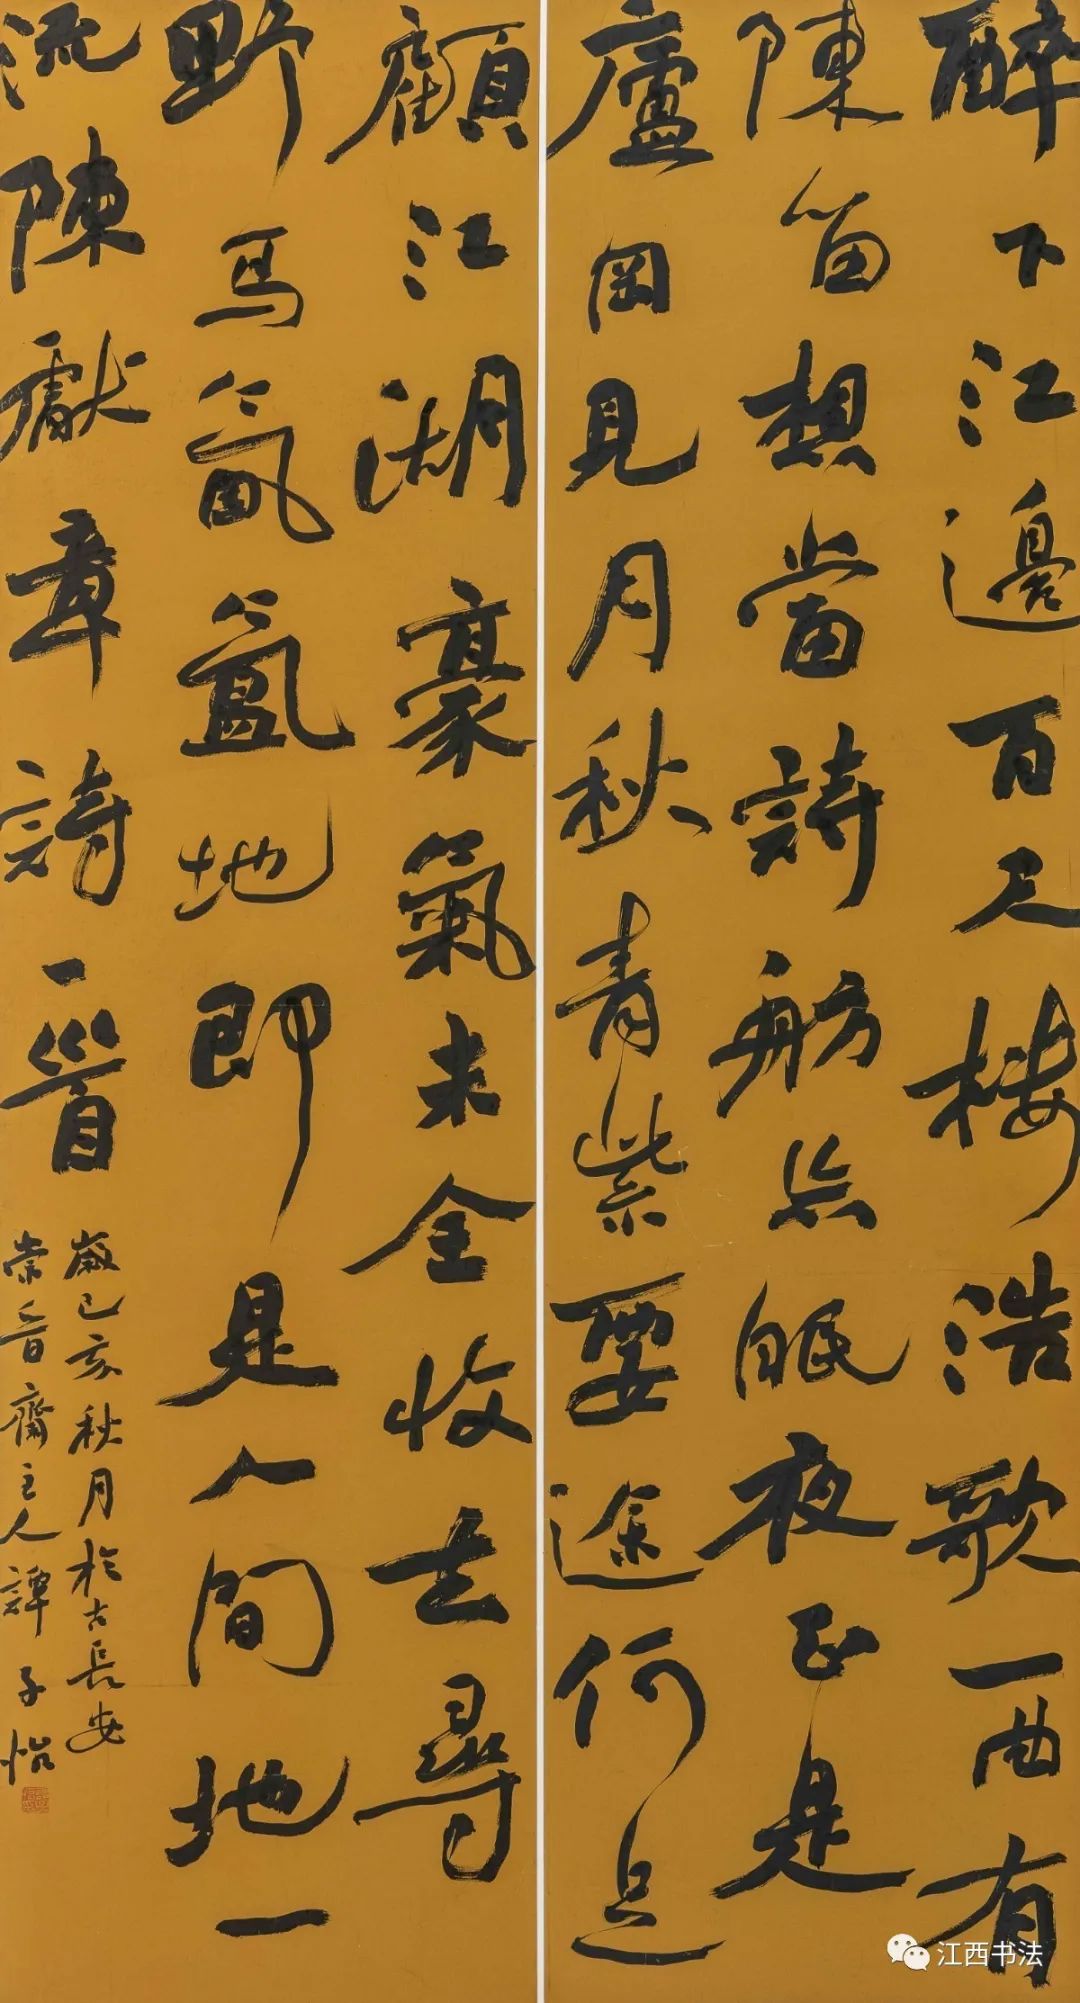 醉下江邊百尺楼浩歌一曲有
陳留想當詩舫無眠夜正是
廬岡見月秋青紫要途何足
顧江湖豪氣未全收去尋
野馬氤氳地即是人間地一
流陳獻章詩一首
歲己亥秋月於古長安
崇晋齋主人譚子怡
江西书法